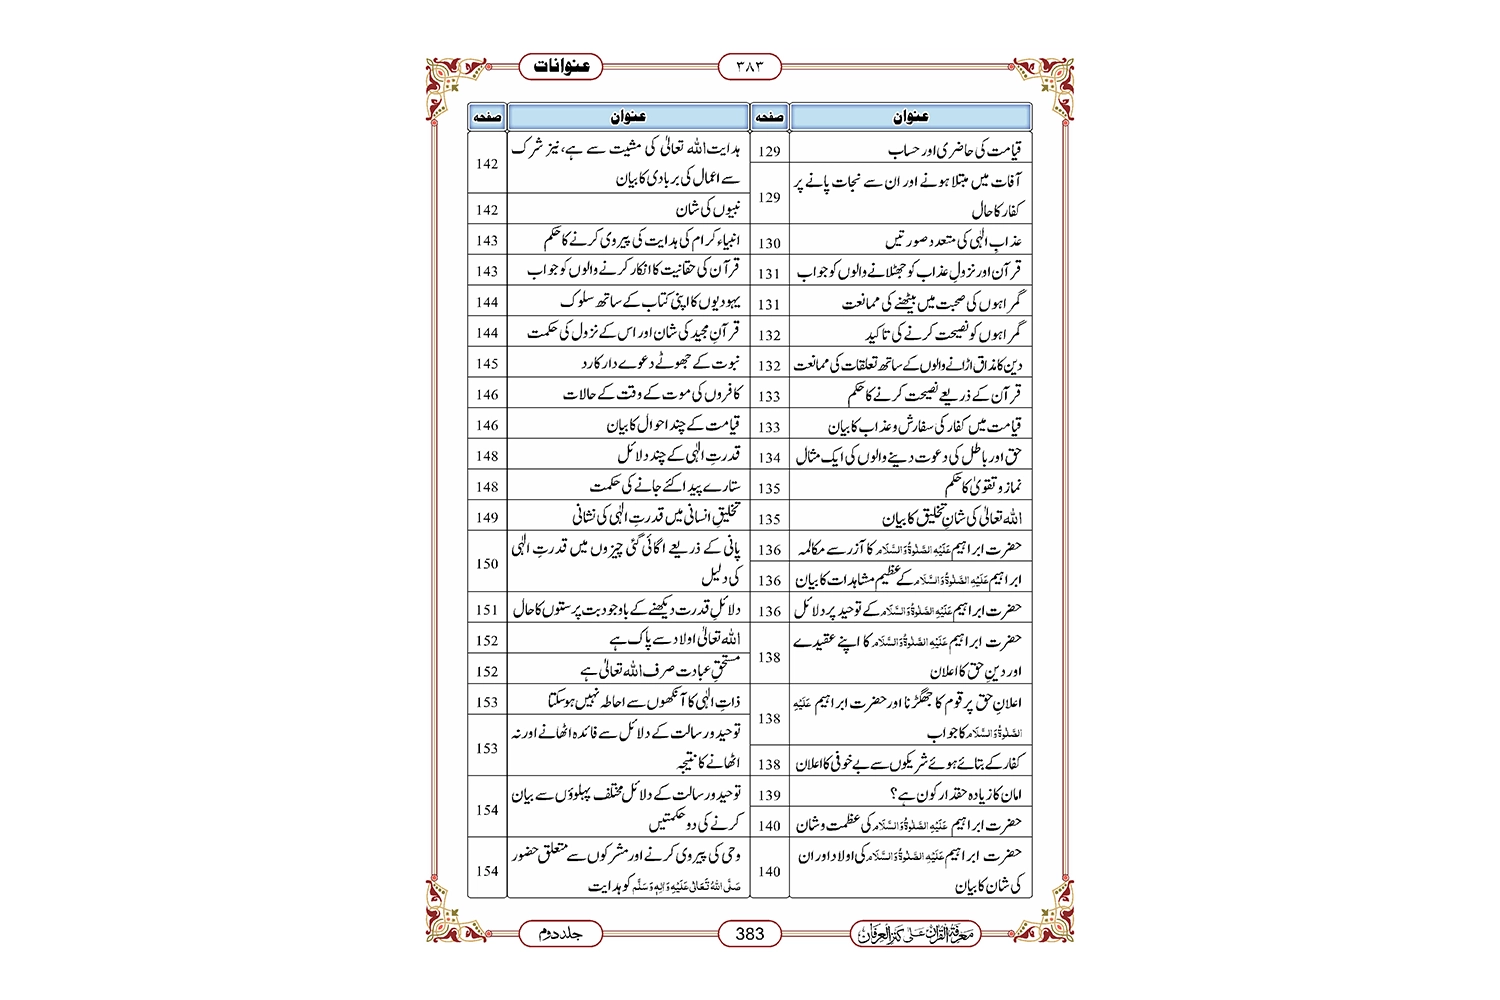 عنوانات
۳۸۳
عنوان صفحہ
قیامت کی حاضری اور حساب 129
آفات میں مبتلا ہونے اور ان سے نجات پانے پر
کفار کا حال 129
عذابِ الٰہی کی متعدد صورتیں 130
قرآن اور نزولِ عذاب کو جھٹلانے والوں کو جواب 131
گمراہوں کی صحبت میں بیٹھنے کی ممانعت 131
گمراہوں کو نصیحت کرنے کی تاکید 132
دین کا مذاق اڑانے والوں کے ساتھ تعلقات کی ممانعت 132
قرآن کے ذریعے نصیحت کرنے کا حکم 133
قیامت میں کفار کی سفارش و عذاب کا بیان 133
حق اور باطل کی دعوت دینے والوں کی ایک مثال 134
نماز و تقویٰ کا حکم 135
اللہ تعالیٰ کی شانِ تخلیق کا بیان 135
حضرت ابراہیم عَلَیْہِ الصَّلٰوۃُ وَالسَّلَام کا آزر سے مکالمہ 136
ابراہیم عَلَیْہِ الصَّلٰوۃُ وَالسَّلَام کے عظیم مشاہدات کا بیان 136
حضرت ابراہیم عَلَیْہِ الصَّلٰوۃُ وَالسَّلَام کے توحید پر دلائل 136
حضرت ابراہیم عَلَیْہِ الصَّلٰوۃُ وَالسَّلَام کا اپنے عقیدے
اور دینِ حق کا اعلان 138
اعلانِ حق پر قوم کا جھگڑنا اور حضرت ابراہیم عَلَیْہِ
الصَّلٰوۃُ وَالسَّلَام کا جواب 138
کفار کے بتائے ہوئے شریکوں سے بے خوفی کا اعلان 138
امان کا زیادہ حقدار کون ہے؟ 139
حضرت ابراہیم عَلَیْہِ الصَّلٰوۃُ وَالسَّلَام کی عظمت و شان 140
حضرت ابراہیم عَلَیْہِ الصَّلٰوۃُ وَالسَّلَام کی اولاد اور ان
کی شان کا بیان 140
عنوان صفحہ
ہدایت اللہ تعالیٰ کی مشیت سے ہے، نیز شرک
سے اعمال کی بربادی کا بیان 142
نبیوں کی شان 142
انبیاء کرام کی ہدایت کی پیروی کرنے کا حکم 143
قرآن کی حقانیت کا انکار کرنے والوں کو جواب 143
یہودیوں کا اپنی کتاب کے ساتھ سلوک 144
قرآنِ مجید کی شان اور اس کے نزول کی حکمت 144
نبوت کے جھوٹے دعوے دار کا رد 145
کافروں کی موت کے وقت کے حالات 146
قیامت کے چند احوال کا بیان 146
قدرتِ الٰہی کے چند دلائل 148
ستارے پیدا کئے جانے کی حکمت 148
تخلیقِ انسانی میں قدرتِ الٰہی کی نشانی 149
پانی کے ذریعے اگائی گئی چیزوں میں قدرتِ الٰہی
کی دلیل 150
دلائلِ قدرت دیکھنے کے باوجود بت پرستوں کا حال 151
اللہ تعالیٰ اولاد سے پاک ہے 152
مستحقِ عبادت صرف اللہ تعالیٰ ہے 152
ذاتِ الٰہی کا آنکھوں سے احاطہ نہیں ہوسکتا 153
توحید و رسالت کے دلائل سے فائدہ اٹھانے اور نہ
اٹھانے کا نتیجہ 153
توحید و رسالت کے دلائل مختلف پہلوؤں سے بیان
کرنے کی دو حکمتیں 154
وحی کی پیروی کرنے اور مشرکوں سے متعلق حضور
صَلَّی اللہُ تَعَالٰی عَلَیْہِ وَاٰلِہٖ وَسَلَّم کو ہدایت 154
معرفۃ القرآن علیٰ کنز العرفان
383
جلد دوم